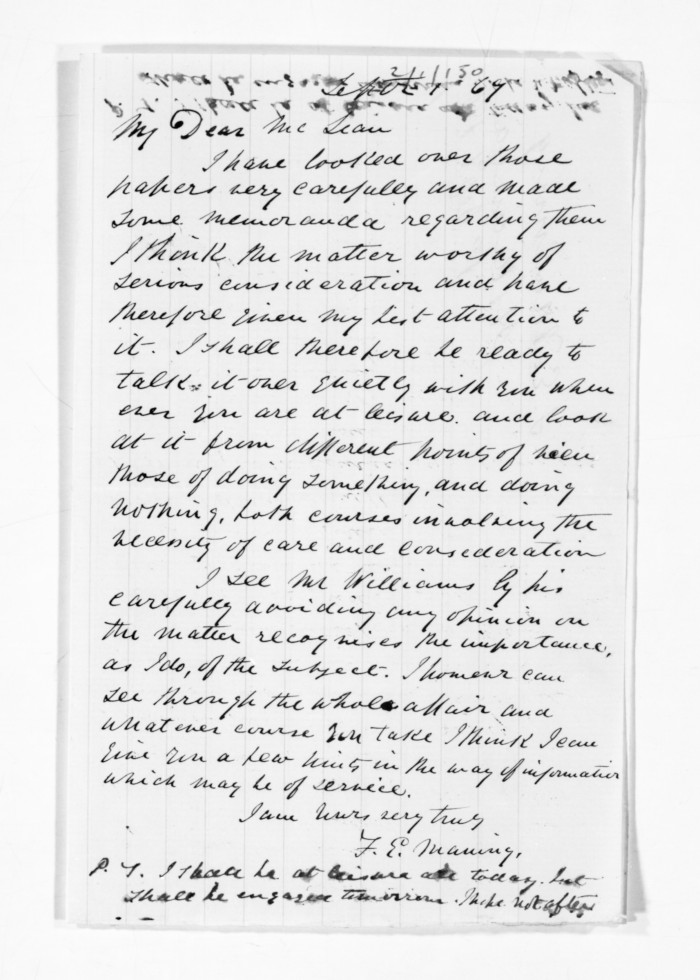 Sept 1. 69
My Dear McLean
I have looked over those
papers very carefully and made
some memoranda regarding them
I think the matter worthy of
serious consideration and have
therefore given my best attention to
it. I shall therefore be ready to
talk it over quietly with you when
ever you are at leisure. and look
at it from different points of view
those of doing something, and doing
nothing, both courses involving the
necessity of care and consideration
I see Mr Williams by his
carefully avoiding any opinion on
the matter recognises the importance,
as I do, of the subject. I however can
see through the whole affair and
whatever course you take I think I can
give you a few hints in the way of information
which may be of service.
I am yours very truly
F. E. Maning.
P. S. I shall be at leisure all today. but
shall be engaged tomorrow. I hope not after